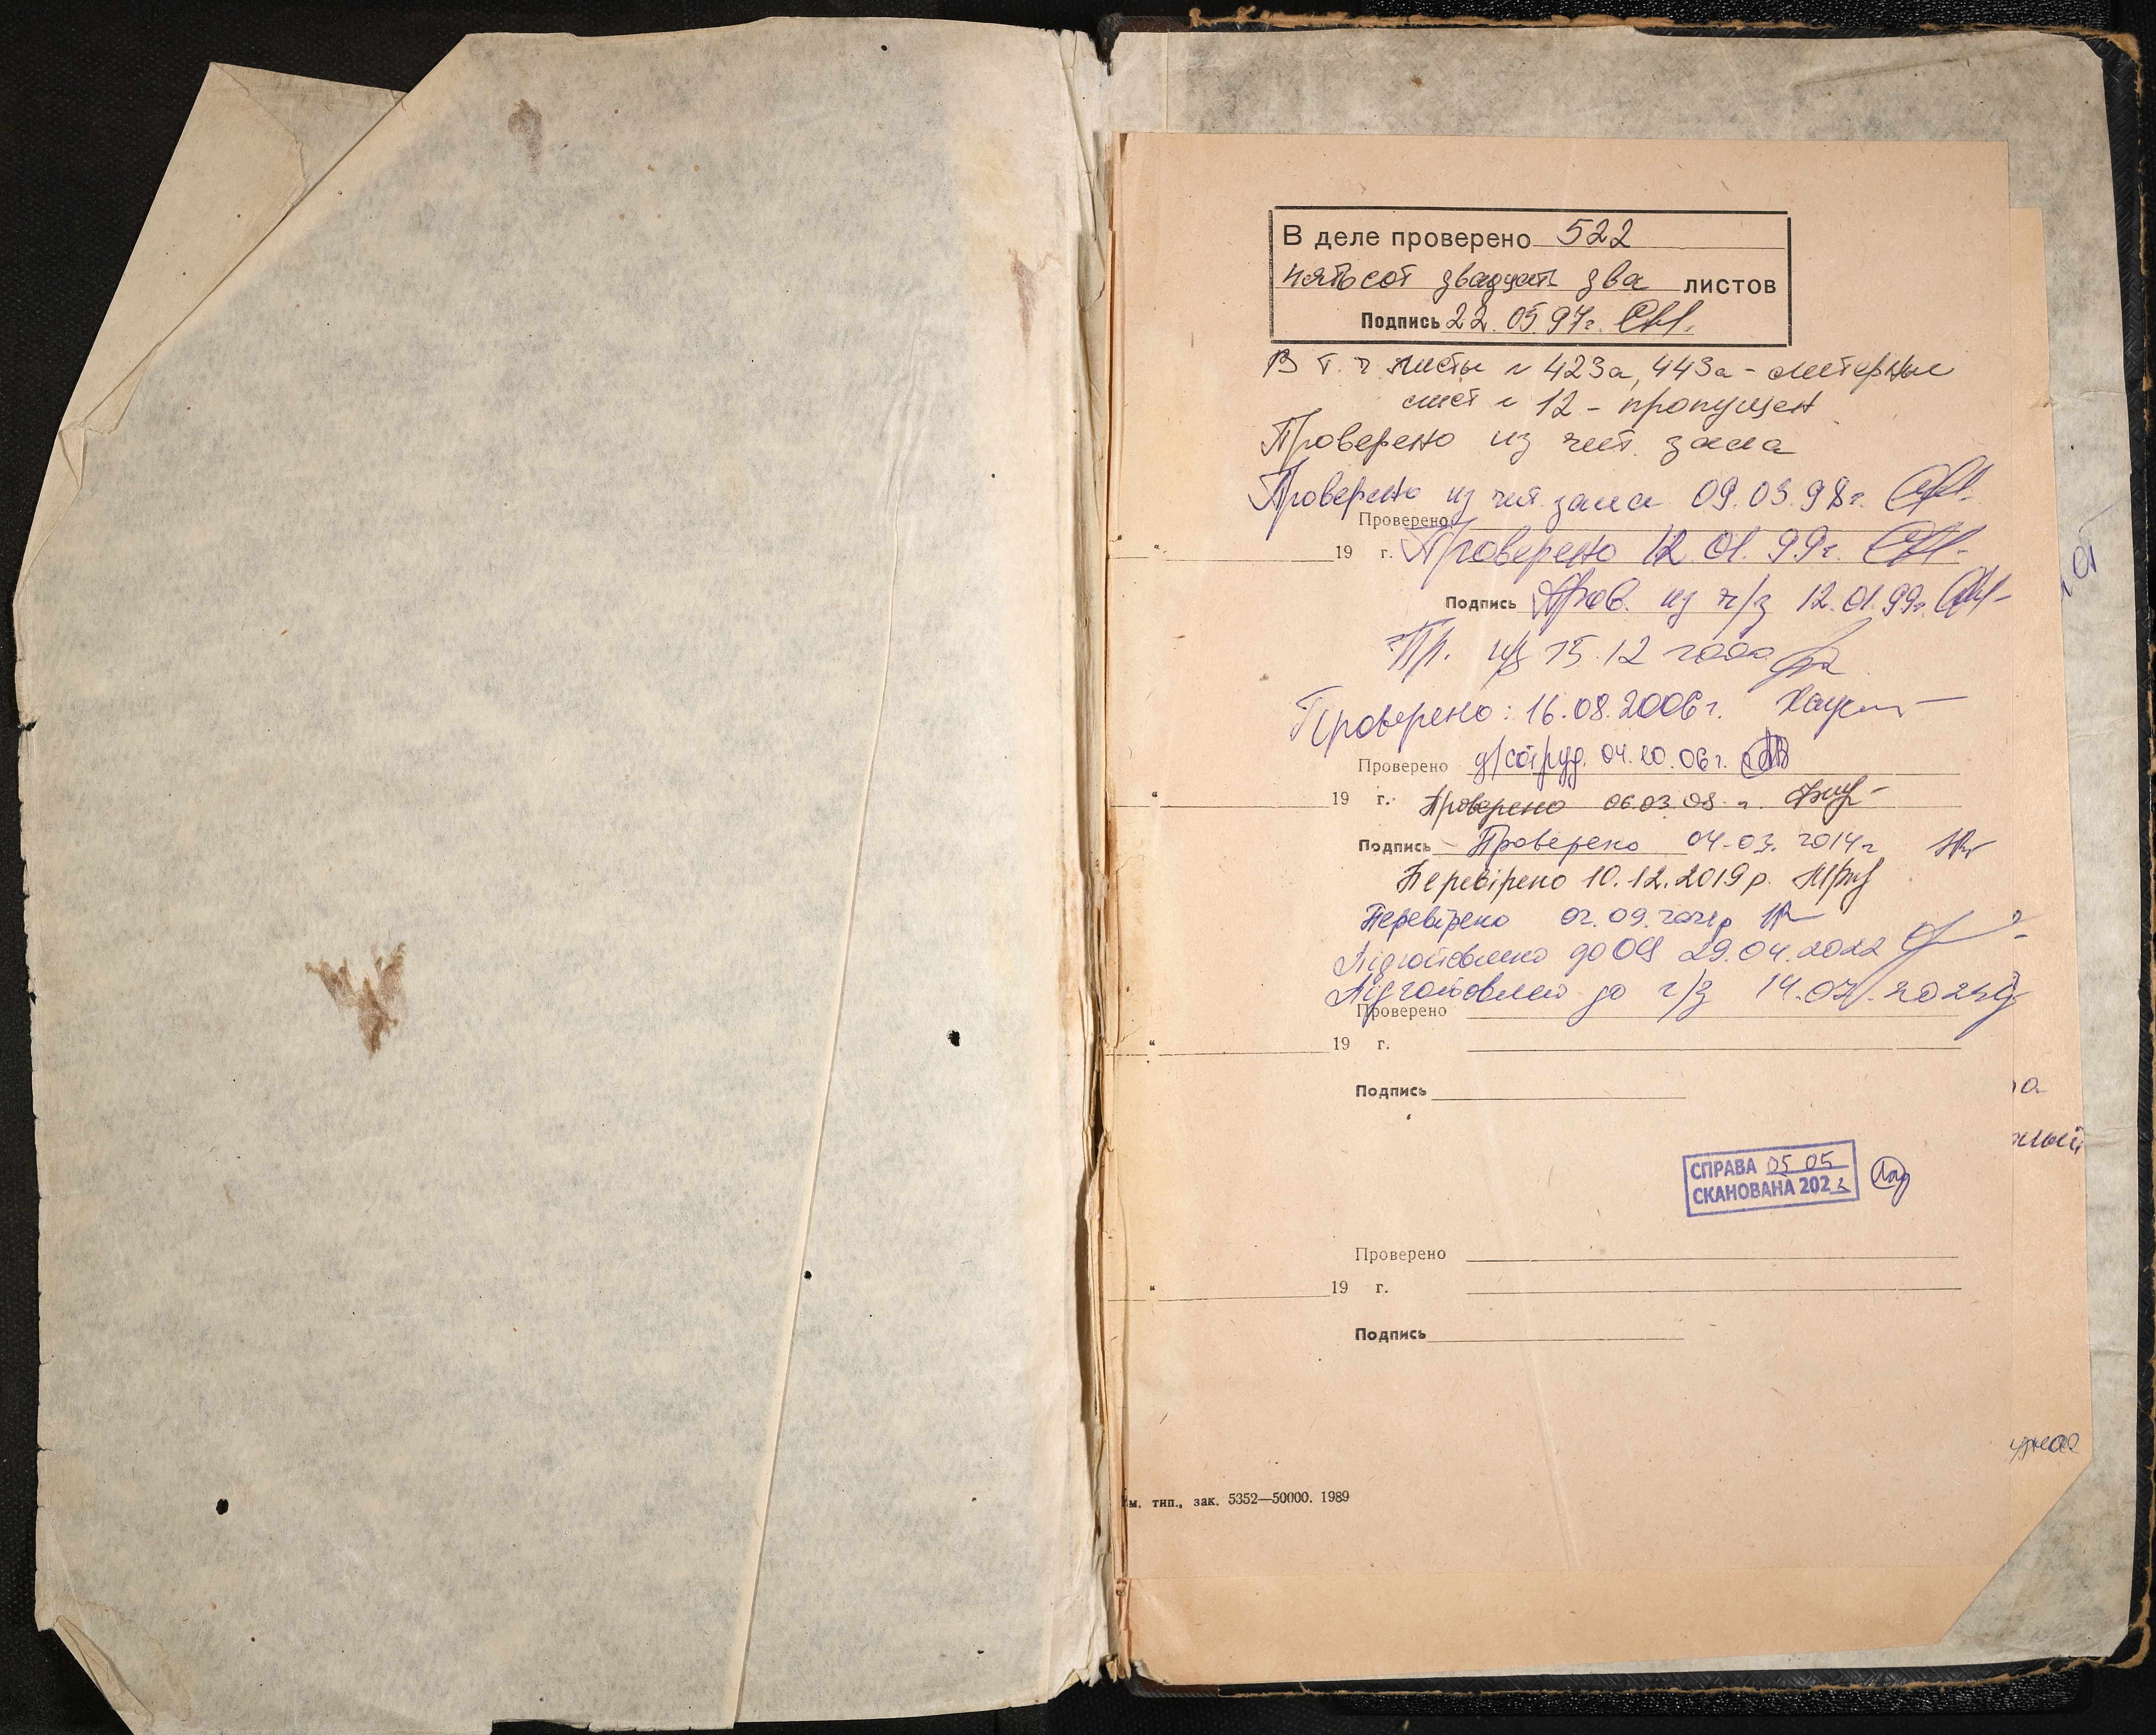 В деле проверено 522
пятьсот двадцать два листов
Подпись 22.05 97г.
В т. ч листы № 423а, 443а - литерные
лист № 12 - пропущен
Проверено из чит. зала
Проверено из чит. зала 09.03.98г.
Проверено
19 г. Проверено 12.01.99г.
Подпись Пров. из ч/з 12.01.99г.
Пр. ч/з 15.12 2000
Проверено: 16.08.2006г.
Проверено д/сотруд. 04.10.06г.
19 г. Проверено 06.03.08 г.
Подпись Проверено 04.03.2014г
Перевірено 10.12.2019р.
Перевірено 02.09.2021р
Підготовлено до ОЦ 29.04.2022
Підготовлено до ч/з 14.07.2025
Проверено
19 г.
Подпись
СПРАВА 05 05
СКАНОВАНА 2022
Проверено
19 г.
Подпись
м. тип., зак. 5352—50000. 1989